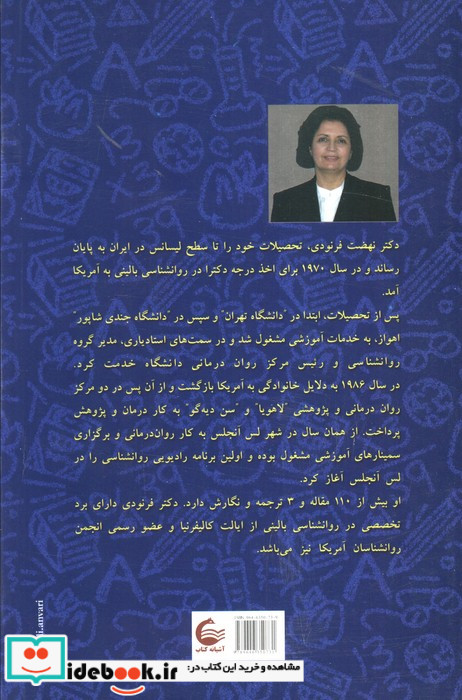 دکتر نهضت فرنودی، تحصیلات خود را تا سطح لیسانس در ایران به پایان
رساند و در سال ۱۹۷۰ برای اخذ درجه دکترا در روانشناسی بالینی به آمریکا
آمد.
پس از تحصیلات، ابتدا در "دانشگاه تهران" و سپس در "دانشگاه جندی شاپور"
اهواز، به خدمات آموزشی مشغول شد و در سمت‌های استادیاری، مدیر گروه
روانشناسی و رئیس مرکز روان درمانی دانشگاه خدمت کرد.
در سال ۱۹۸۶ به دلایل خانوادگی به آمریکا بازگشت و از آن پس در دو مرکز
روان درمانی و پژوهشی "لاهویا" و "سن دیه‌گو" به کار درمان و پژوهش
پرداخت. از همان سال در شهر لس آنجلس به کار روان‌درمانی و برگزاری
سمینارهای آموزشی مشغول بوده و اولین برنامه رادیویی روانشناسی را در
لس آنجلس آغاز کرد.
او بیش از ۱۱۰ مقاله و ۳ ترجمه و نگارش دارد. دکتر فرنودی دارای برد
تخصصی در روانشناسی بالینی از ایالت کالیفرنیا و عضو رسمی انجمن
روانشناسان آمریکا نیز می‌باشد.
i.anvari
آشیانه کتاب
مشاهده و خرید این کتاب در:
idebook.ir